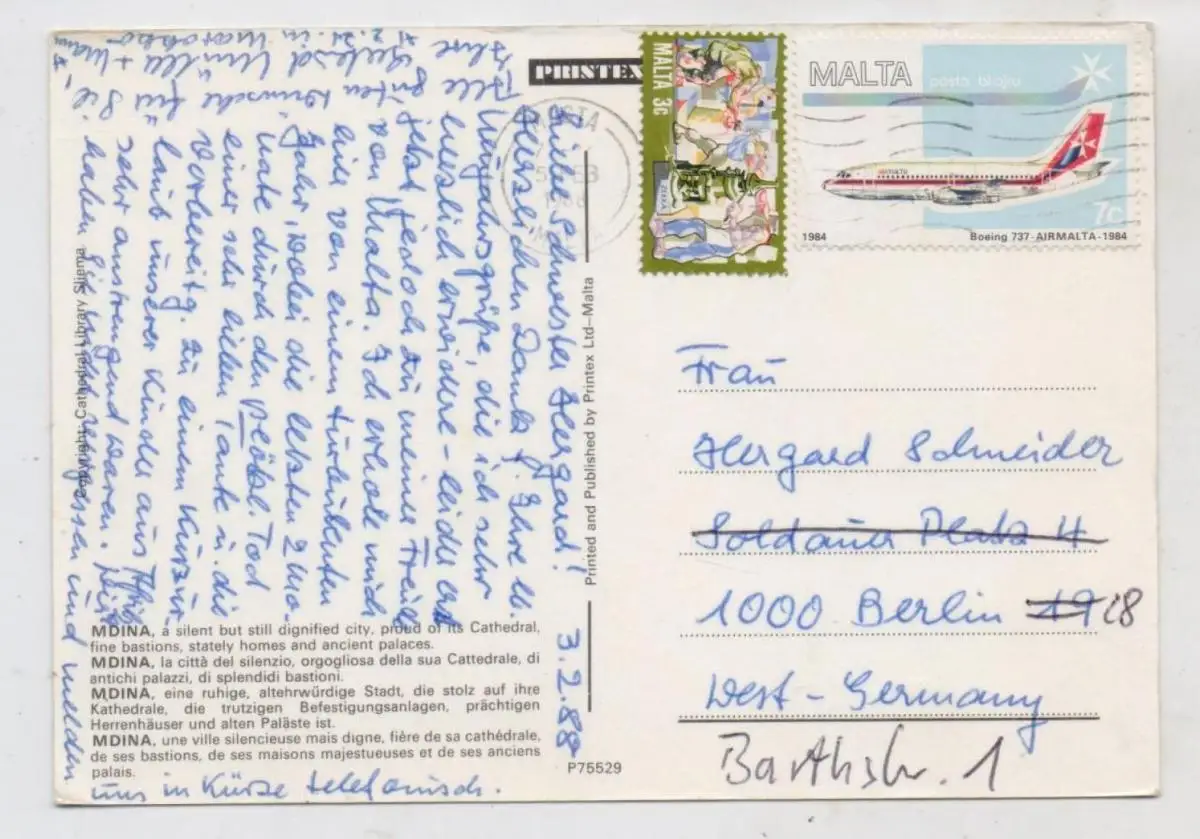 PRINTEX
MALTA 3c
MALTA
posta bl-ajru
7c
1984
Boeing 737 - AIRMALTA - 1984
MALTA
1988
Liebe Schwester Hergard! 3.2.88
Herzlichen Dank f. Ihre
Neujahrsgrüße, die ich sehr
herzlich erwidere - leider erst
jetzt jedoch zu meiner Freude
von Malta. Ich erhole mich
von einem turbulenten
Jahr, wobei die letzten 2 Mo-
nate durch den plötzl. Tod
einer sehr lieben Tante u. die
Vorbereitg. zu einem Kurzur-
laub unserer Kinder aus
sehr anstrengend waren.
haben Sie nicht vergessen und melden
uns in Kürze telefonisch.
Alle guten Wünsche für Sie,
Ihre Müller + Mann
in Marokko
Copyright: Cathedral Library Sliema
MDINA, a silent but still dignified city, proud of its Cathedral,
fine bastions, stately homes and ancient palaces.
MDINA, la città del silenzio, orgogliosa della sua Cattedrale, di
antichi palazzi, di splendidi bastioni.
MDINA, eine ruhige, altehrwürdige Stadt, die stolz auf ihre
Kathedrale, die trutzigen Befestigungsanlagen, prächtigen
Herrenhäuser und alten Paläste ist.
MDINA, une ville silencieuse mais digne, fière de sa cathédrale,
de ses bastions, de ses maisons majestueuses et de ses anciens
palais.
P75529
Printed and Published by Printex Ltd–Malta
Frau
Hergard Schneider
Soldauer Platz 4
1000 Berlin 19 28
West-Germany
Barthstr. 1